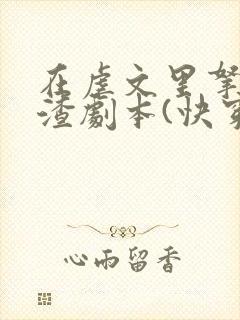 在虐文里拿
渣剧本(快穿
心雨留香